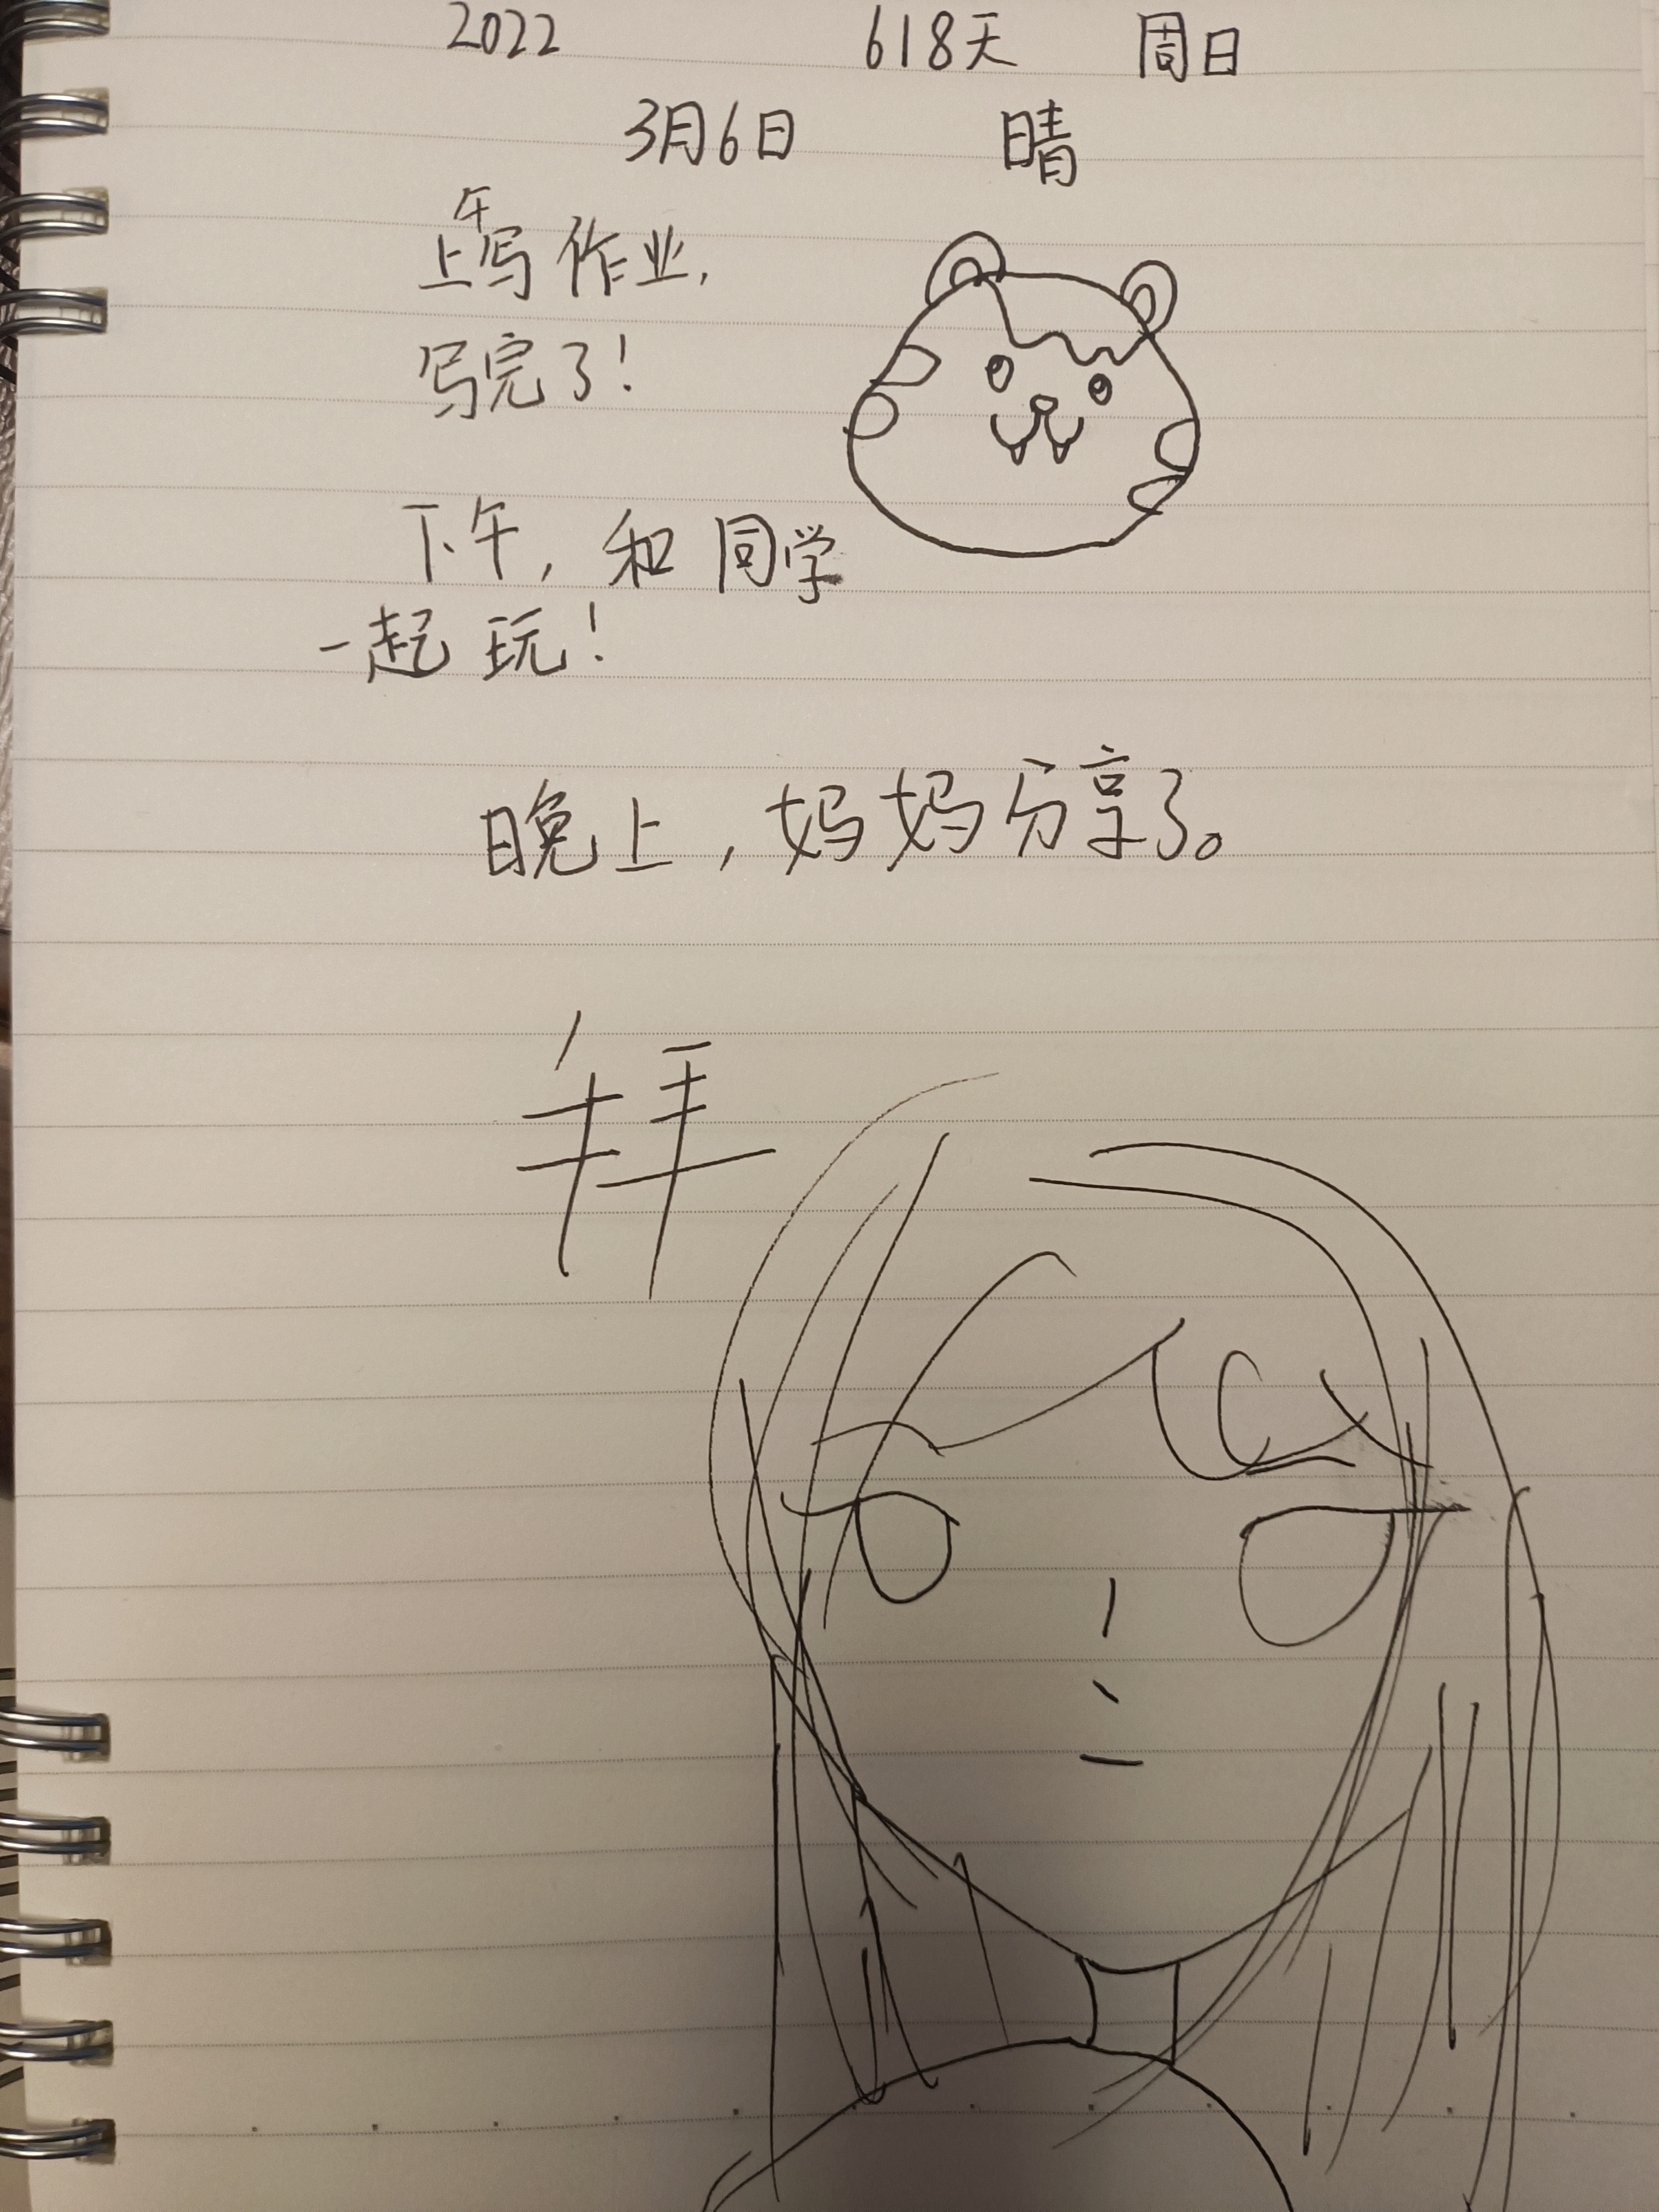 2022 618天 周日
3月6日 晴
上午写作业，
写完了！
下午，和同学
一起玩！
晚上，妈妈分享了。
拜